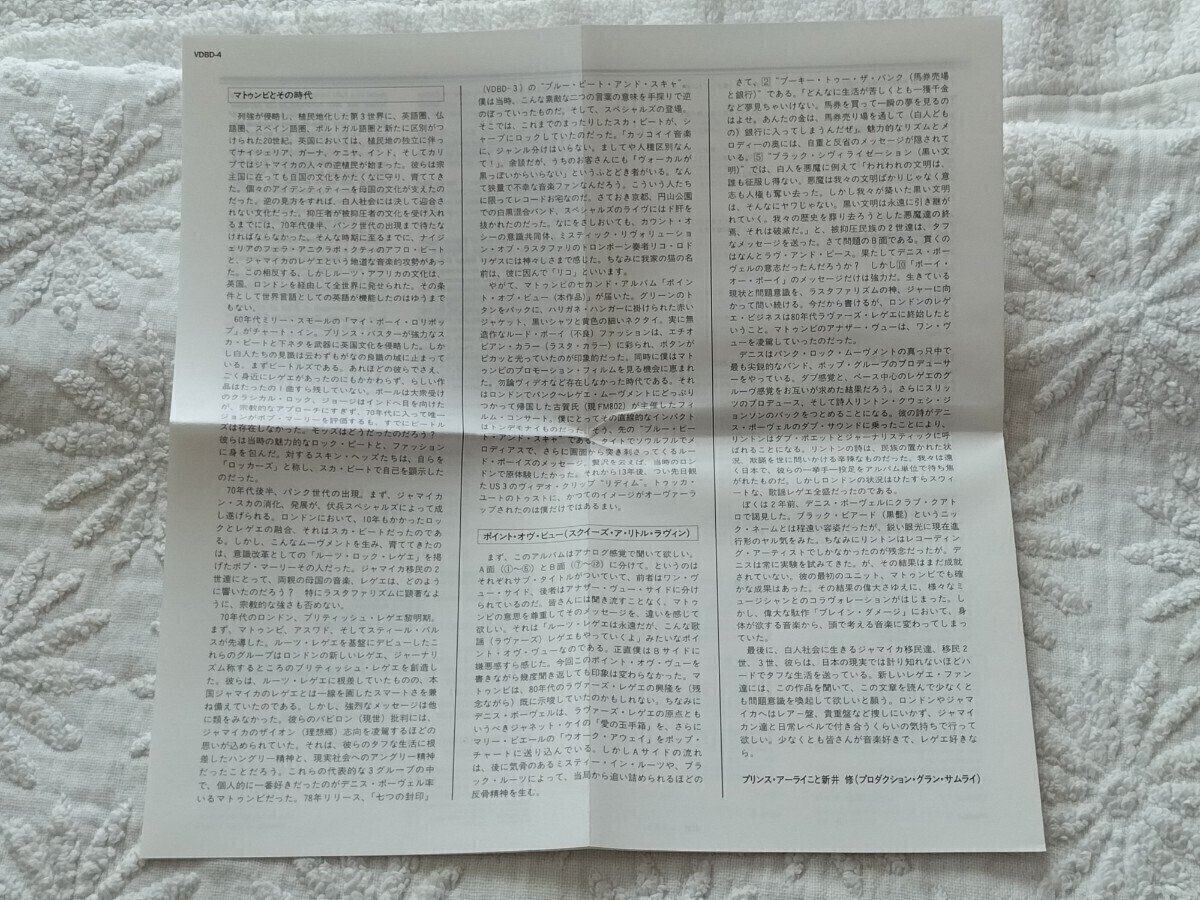 VDBD-4
マトゥンビとその時代
列強が侵略し、植民地化した第3世界に、英語圏、仏
語圏、スペイン語圏、ポルトガル語圏と新たに区別がつ
けられた20世紀。英国においては、植民地の独立に伴っ
てナイジェリア、ガーナ、ケニヤ、インド、そしてカリ
ブではジャマイカの人々の逆植民が始まった。彼らは宗
主国に在っても自国の文化をかたくなに守り、育ててき
た。個々のアイデンティティーを母国の文化が支えたの
だった。逆の見方をすれば、白人社会には決して迎合さ
れない文化だった。抑圧者が被抑圧者の文化を受け入れ
るまでには、70年代後半、パンク世代の出現まで待たな
ければならなかった。そんな時期に至るまでに、ナイジ
ェリアのフェラ・アニクラポ・クティのアフロ・ビート
と、ジャマイカのレゲエという地道な音楽的攻勢があっ
た。この相反する。しかしルーツ・アフリカの文化は、
英国、ロンドンを経由して全世界に発せられた。その条
件として世界言語としての英語が機能したのはゆうまで
もない。
60年代ミリー・スモールの『マイ・ボーイ・ロリポッ
プ』がチャート・イン。プリンス・バスターが強力なス
カ・ビートと下ネタを武器に英国文化を侵略した。しか
し白人たちの見識は云わずもがなの良識の域に止まって
いる。まずビートルズである。あれほどの彼らでさえ、
ごく身近にレゲエがあったのにもかかわらず、らしい作
品はたったの1曲すら残していない。ポールは大衆受け
のクラシカル・ロック、ジョージはインドへ目を向けた
が、宗教的なアプローチにすぎず、70年代に入って唯一
ジョンがボブ・マーリーを評価するも、すでにビートル
ズは存在しなかった。モッズはどうだったのだろう？
彼らは当時の魅力的なロック・ビートと、ファッション
に身を包んだ。対するスキン・ヘッズたちは、自らを
「ロッカーズ」と称し、スカ・ビートで自己を顕示した
のだった。
70年代後半、パンク世代の出現。まず、ジャマイカ
ン・スカの消化、発展が、伏兵スペシャルズによって成
し遂げられる。ロンドンにおいて、10年もかかったロッ
クとレゲエの融合、それはスカ・ビートだったのであ
る。しかし、こんなムーヴメントを生み、育ててきたの
は、意識改革としての「ルーツ・ロック・レゲエ」を掲
げたボブ・マーリーその人だった。ジャマイカ移民の2
世達にとって、両親の母国の音楽、レゲエは、どのよう
に響いたのだろう？　特にラスタファリズムに顕著なよ
うに、宗教的な強さも否めない。
70年代のロンドン、ブリティッシュ・レゲエ黎明期。
まず、マトゥンビ、アスワド、そしてスティール・パル
スが先導した。ルーツ・レゲエを基盤にデビューしたこ
れらのグループはロンドンの新しいレゲエ、ジャーナリ
ズム称するところのブリティッシュ・レゲエを創造し
た。彼らは、ルーツ・レゲエに根差していたものの、本
国ジャマイカのレゲエとは一線を画したスマートさを兼
ね備えていたのである。しかし、強烈なメッセージは他
に類をみなかった。彼らのバビロン（現世）批判には、
ジャマイカのザイオン（理想郷）志向を凌駕するほどの
思いが込められていた。それは、彼らのタフな生活に根
差したハングリー精神と、現実社会へのアングリー精神
だったことだろう。これらの代表的な3グループの中
で、個人的に一番好きだったのがデニス・ボーヴェル率
いるマトゥンビだった。78年リリース、「七つの封印」
（VDBD-3）の“ブルー・ビート・アンド・スキャ”。
僕は当時、こんな素敵な二つの言葉の意味を手探りで逆
のぼっていったものだ。そして、スペシャルズの登場、
そこでは、これまでのまったりしたスカ・ビートが、シ
ャープにロックしていたのだった。「カッコイイ音楽
に、ジャンル分けはいらない。ましてや人種区別なん
て！」。余談だが、うちのお客さんにも「ヴォーカルが
黒っぽいからいらない」というふとどき者がいる。なん
て狭量で不幸な音楽ファンなんだろう。こういう人たち
に限ってレコードお宅なのだ。さておき京都、円山公園
での白黒混合バンド、スペシャルズのライヴにはド肝を
抜かれたのだった。なにをさしおいても、カウント・オ
シーの意識共同体、ミスティック・リヴォリューショ
ン・オブ・ラスタファリのトロンボーン奏者リコ・ロド
リゲスには神々しさまで感じた。ちなみに我家の猫の名
前は、彼に因んで「リコ」といいます。
やがて、マトゥンビのセカンド・アルバム「ポイン
ト・オブ・ビュー（本作品）」が届いた。グリーンのト
タンをバックに、ハリガネ・ハンガーに掛けられた赤い
ジャケット、黒いシャツと黄色の細いネクタイ。実に無
造作なルード・ボーイ（不良）ファッションは、エチオ
ピアン・カラー（ラスタ・カラー）に彩られ、ボタンが
ピカッと光っていたのが印象的だった。同時に僕はマト
ゥンビのプロモーション・フィルムを見る機会に恵まれ
た。勿論ヴィデオなど存在しなかった時代である。それ
はロンドンでパンク〜レゲエ・ムーヴメントにどっぷり
つかって帰国した古賀氏（現FM802）が主催したフィ
ルム・コンサート。僕にとってその直線的なインパクト
はトンデモナイものだった。そう、先の“ブルー・ビー
ト・アンド・スキャ”である。タイトでソウルフルでメ
ロディアスで、さらに画面から突き刺さってくるルー
ド・ボーイズのメッセージ。贅沢を云えば、当時のロン
ドンで原体験したかった。それから13年後、つい先日観
たUS3のヴィデオ・クリップ“リディム”。トゥッカ・
ユートのトゥストに、かつてのイメージがオーヴァーラ
ップされたのは僕だけではあるまい。
ポイント・オヴ・ビュー（スクイーズ・ア・リトル・ラヴィン）
まず、このアルバムはアナログ感覚で聞いて欲しい。
A面（①〜⑥）とB面（⑦〜⑩）に分けて、というのは
それぞれサブ・タイトルがついていて、前者はワン・ヴ
ュー・サイド、後者はアナザー・ヴュー・サイドに分け
られているのだ。皆さんには聞き流すことなく、マトゥ
ンビの意思を尊重してそのメッセージを、違いを感じて
欲しい。それは「ルーツ・レゲエは永遠だが、こんな歌
謡（ラヴァーズ）レゲエもやっていくよ」みたいなポイ
ント・オヴ・ヴューなのである。正直僕はBサイドに
嫌悪感すら感じた。今回このポイント・オヴ・ヴューを
書きながら幾度聞き返しても印象は変わらなかった。マ
トゥンビは、80年代のラヴァーズ・レゲエの興隆を（残
念ながら）既に示唆していたのかもしれない。ちなみに
デニス・ボーヴェルは、ラヴァーズ・レゲエの原点とも
いうべきジャネット・ケイの「愛の玉手箱」を、さらに
マリー・ピエールの「ウオーク・アウェイ」をポップ・
チャートに送り込んでいる。しかしAサイドの流れ
は、後に気骨のあるミスティー・イン・ルーツや、ブラ
ック・ルーツによって、当局から追い詰められるほどの
反骨精神を生む。
さて、②“ブーキー・トゥー・ザ・バンク（馬券売場
と銀行）”である。「どんなに生活が苦しくとも一攫千金
など夢見ちゃいけない。馬券を買って一瞬の夢を見るの
はよせ。あんたの金は、馬券売り場を通して（白人ども
の）銀行に入ってしまうんだぜ」。魅力的なリズムとメ
ロディーの奥には、自重と反省のメッセージが隠されて
いる。⑤“ブラック・シヴィライゼーション（黒い文
明）”では、白人を悪魔に例えて「われわれの文明は、
誰も征服し得ない。悪魔は我々の文明ばかりじゃなく意
志も人権も奪い去った。しかし我々が築いた黒い文明
は、そんなにヤワじゃない。黒い文明は永遠に引き継が
れていく。我々の歴史を葬り去ろうとした悪魔達の終
焉、それは破滅だ。」と、被抑圧民族の2世達は、タフ
なメッセージを送った。さて問題のB面である。貫くの
はなんとラヴ・アンド・ピース。果たしてデニス・ボー
ヴェルの意志だったんだろうか？　しかし⑩「ボーイ・
オー・ボーイ」のメッセージだけは強力だ。生きている
現状と問題意識を、ラスタファリズムの神、ジャーに向
かって問い続ける。今だから書けるが、ロンドンのレゲ
エ・ビジネスは80年代ラヴァーズ・レゲエに終始したと
いうこと。マトゥンビのアナザー・ヴューは、ワン・ヴ
ューを凌駕していったのだった。
デニスはパンク・ロック・ムーヴメントの真っ只中で
最も尖鋭的なバンド、ポップ・グループのプロデューサ
ーをやっている。ダブ感覚と、ベース中心のレゲエのグ
ルーヴ感覚をお互いが求めた結果だろう。さらにスリッ
ツのプロデュース、そして詩人リントン・クウェシ・ジ
ョンソンのバックをつとめることになる。彼の詩がデニ
ス・ボーヴェルのダブ・サウンドに乗ったことにより、
リントンはダブ・ポエットとジャーナリスティックに呼
ばれることになる。リントンの詩は、民族の置かれた状
況、欺瞞を世に問いかける辛辣なものだった。我々は遠
く日本で、彼らの一挙手一投足をアルバム単位で待ち焦
がれたものだ。しかしロンドンの状況はひたすらスウィ
ートな、歌謡レゲエ全盛だったのである。
ぼくは2年前、デニス・ボーヴェルにクラブ・クアト
ロで謁見した。ブラック・ビアード（黒髭）というニッ
ク・ネームとは程遠い容姿だったが、鋭い眼光に現在進
行形のヤル気をみた。ちなみにリントンはレコーディン
グ・アーティストでしかなかったのが残念だったが。デ
ニスは常に実験を試みてきた。が、その結果はまだ成就
されていない。彼の最初のユニット、マトゥンビでも確
かな成果はあった。その結果の偉大さゆえに、様々なミ
ュージシャンとのコラヴォレーションがはじまった。し
かし、偉大な駄作「ブレイン・ダメージ」において、身
体が欲する音楽から、頭で考える音楽に変わってしまっ
ていた。
最後に、白人社会に生きるジャマイカ移民達、移民2
世、3世、彼らは、日本の現実では計り知れないほどハ
ードでタフな生活を送っている。新しいレゲエ・ファン
達には、この作品を聞いて、この文章を読んで少なくと
も問題意識を喚起して欲しいと願う。ロンドンやジャマ
イカへはレアー盤、貴重盤など捜しにいかず、ジャマイ
カン達と日常レベルで付き合うくらいの気持ちで行って
欲しい。少なくとも皆さんが音楽好きで、レゲエ好きな
ら。
プリンス・アーライこと新井 修（プロダクション・グラン・サムライ）